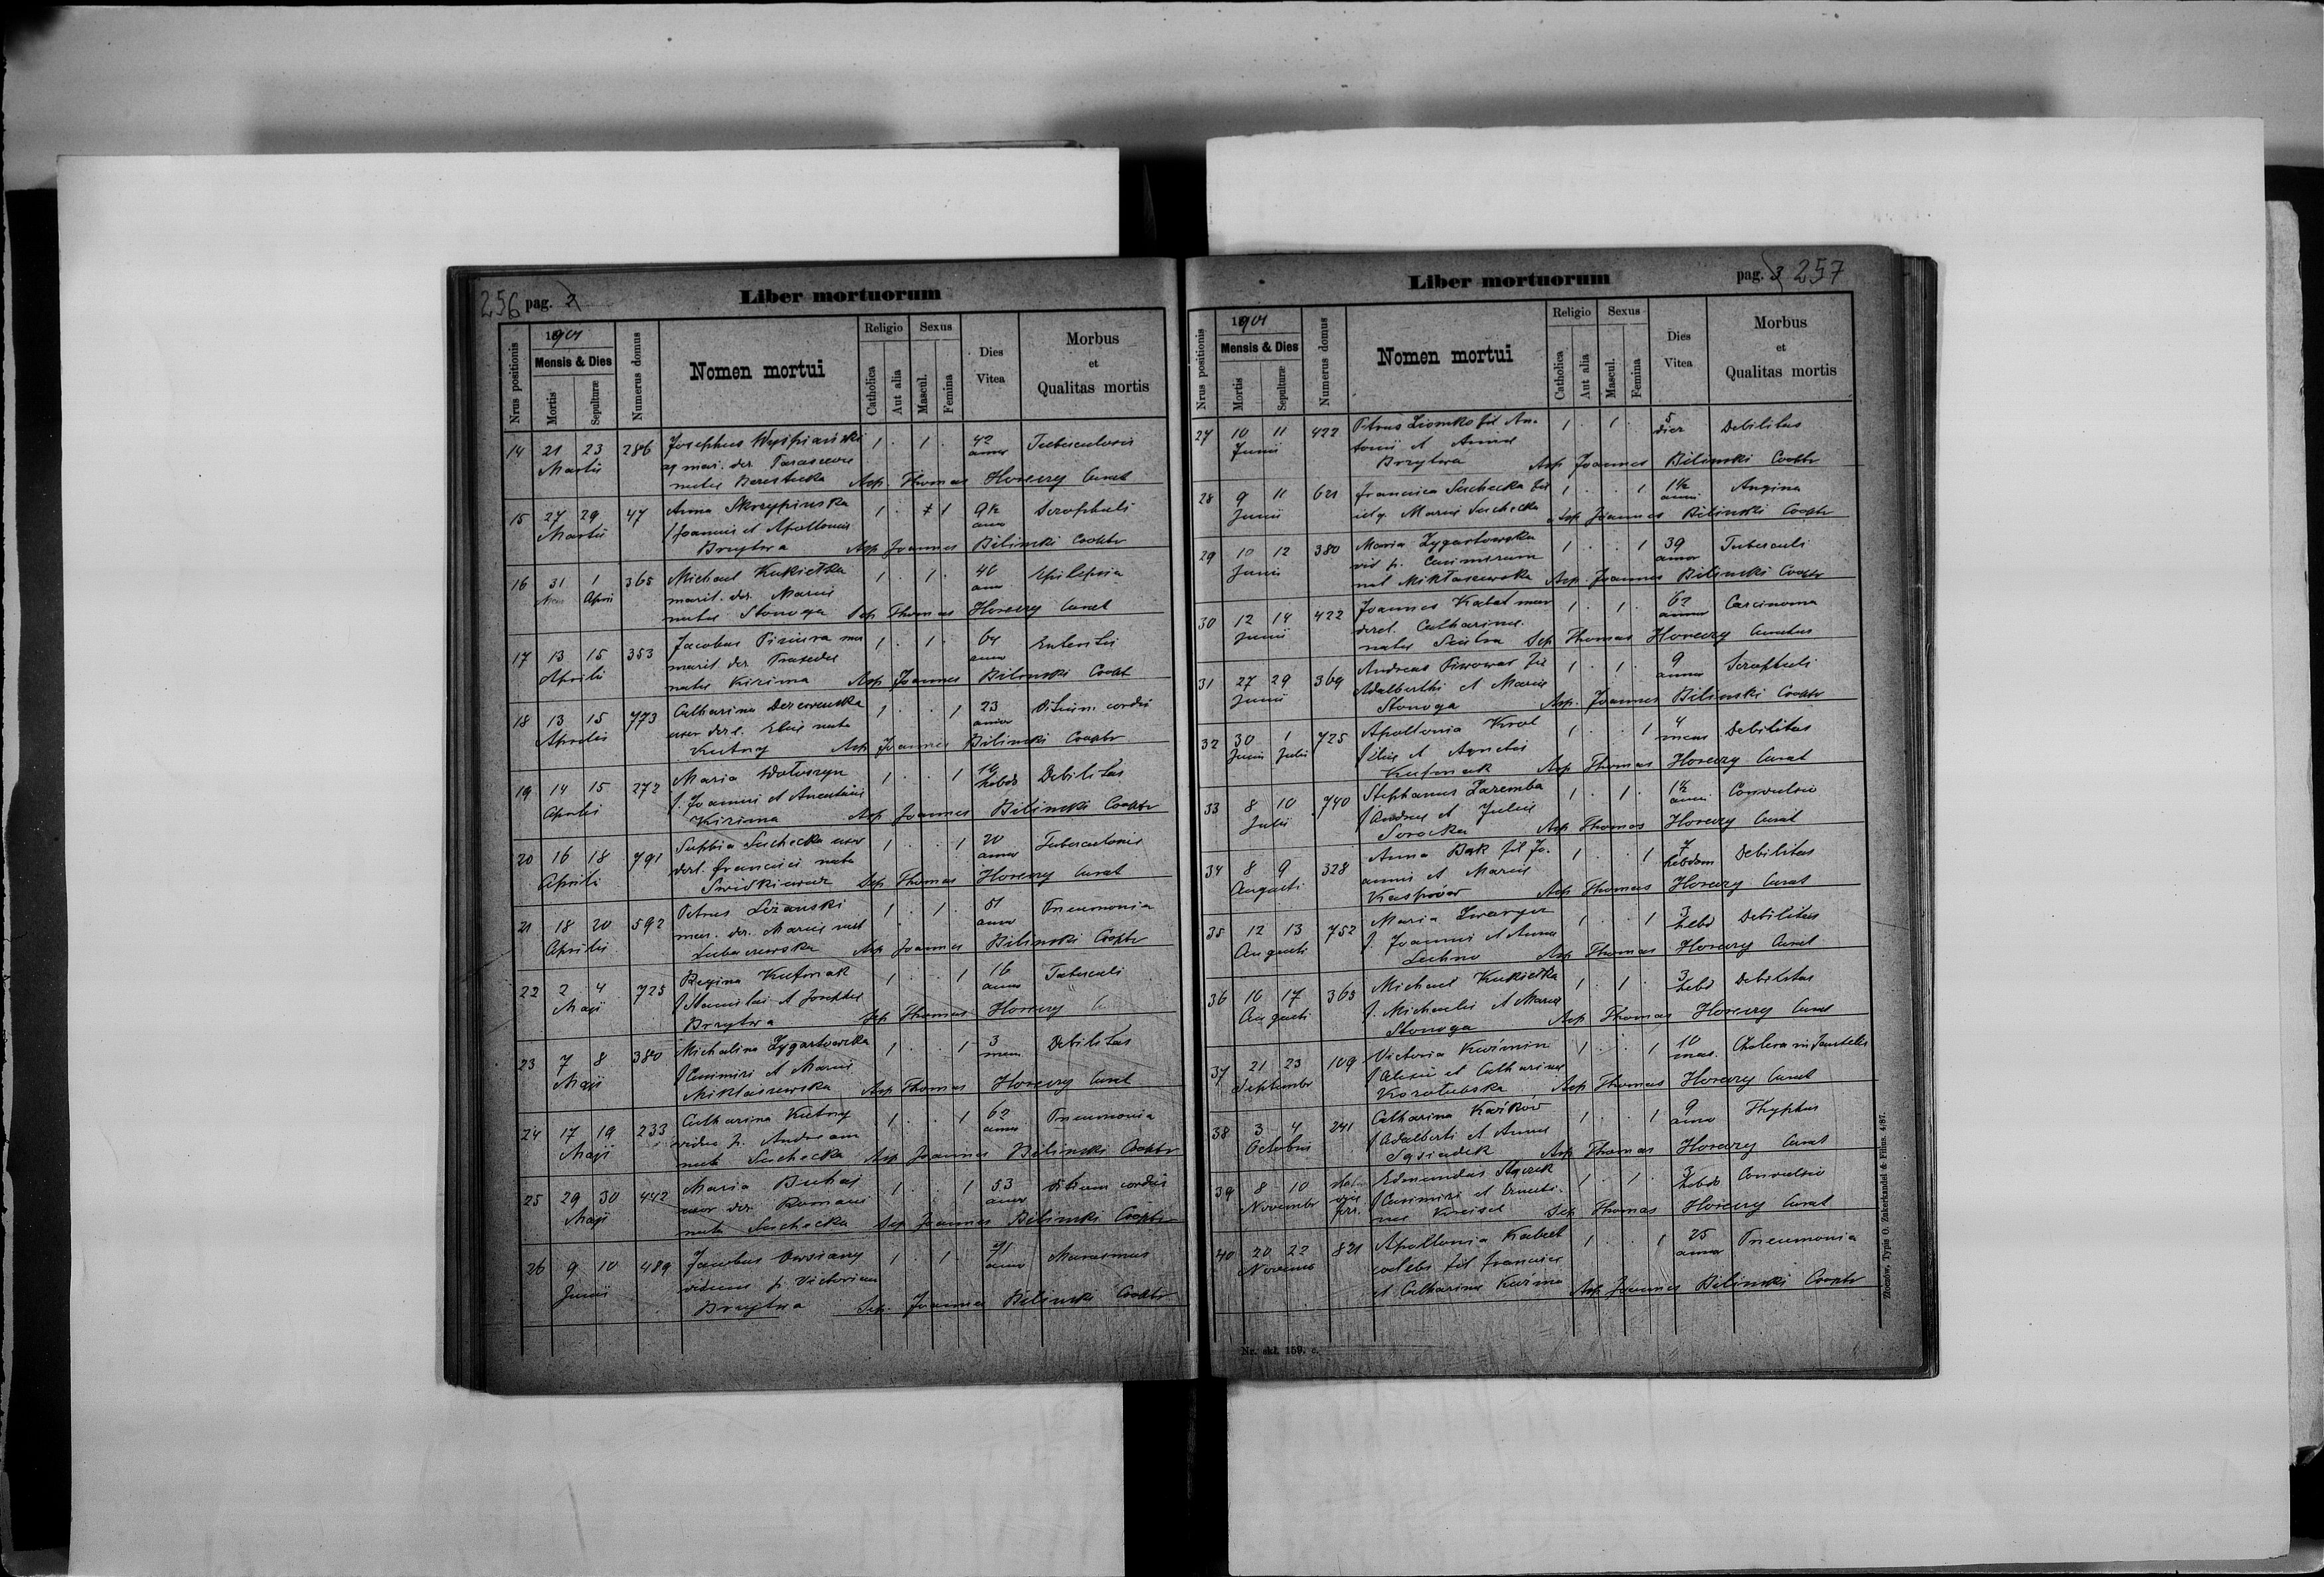 256 pag. 2
Liber mortuorum
Nrus positionis
1901
Mensis & Dies
Mortis
Sepulturæ
Numerus domus
Nomen mortui
Religio
Catholica
Aut alia
Sexus
Mascul.
Femina
Dies Vitea
Morbus et Qualitas mortis
14 21 23 286 Josephus Wyspiański 1 . 1 . 42 Tuberculosis
Martii annor
natae Berestecka Sep. Thomas Horeczy Curat
15 27 29 47 Anna Skrzypinska 1 . 1 9½ Scrophuli
Martii f Joannis et Apolloniae
Brzytwa Sep Joannes Bilinski Cooptr
16 31 1 365 Michael Kukiełka 1 . 1 . 46 Epilepsia
Aprii marit. der. Mariae
natae Stonoga Sep Thomas Horeczy Curat
17 13 15 353 Jacobus 1 . 1 . 64
Aprilis marit der. Praxedae
natae Kirima Sep Joannes Bilinski Coopt
18 13 15 773 Catharina Derewenska 1 . . 1 23 Vitium cordis
Aprilis uxor derl. Eliae nata
Kutny Sep Joannes Bilinski Cooptr
19 14 15 272 Maria Wołoszyn 1 . . 1 hebds Debilitas
Aprilis f. Joannis et Anastasiae
Kirima Sep Joannes Bilinski Cooptr
20 16 18 791 Sophia Suchecka uxor 1 . . 1 20 Tuberculosis
Aprilis derl. Francisci nata annor
Sep Thomas Horeczy Curat
21 18 20 592 Petrus 1 . 1 . 51 Pneumonia
Aprilis mar. der. Mariae nat
Lubaczewska Sep Joannes Bilinski Cooptr
22 2 4 725 Regina Kutniak 1 . . 1 16 Tuberculi
Maji f Stanislai et Josephae annor
Brzytwa Sep Thomas Horeczy C
23 7 8 380 Michalina Zygartowska 1 . . 1 3 Debilitas
Maji f Casimiri et Mariae mens
Miklaszewska Sep Thomas Horeczy Curat
24 17 19 233 Catharina Kutny 1 . . 1 62 Pneumonia
Maji vidua p. Andream annor
nata Suchecka Sep Joannes Bilinski Cooptr
25 29 30 442 Maria Buhaj 1 . . 1 53 Vitium cordis
Maji uxor der. Romani annor
nata Suchecka Sep Joannes Bilinski Cooptr
26 9 10 489 Jacobus Owsiany 1 . 1 . 71 Marasmus
Junii viduus p Victoriam annor
Brzytwa Sep. Joannes Bilinski Cooptr
Liber mortuorum
pag. 3 257
Nrus positionis
1901
Mensis & Dies
Mortis
Sepulturæ
Numerus domus
Nomen mortui
Religio
Catholica
Aut alia
Sexus
Mascul.
Femina
Dies Vitea
Morbus et Qualitas mortis
27 10 11 422 Petrus Ziomko fil An- 1 . 1 . 5 Debilitas
Junii tonii et Annae dier
Brzytwa Sep Joannes Bilinski Cooptr
28 9 11 621 Francisca Suchecka fil 1 . . 1 1½ Angina
Junii Mariae Suchecka Sep Joannes Bilinski Cooptr
29 10 12 380 Maria Zygartowska 1 . . 1 39 Tuberculi
Junii vid p. Casimirum annor
nat Miklaszewska Sep. Joannes Bilinski Cooptr
30 12 14 422 Joannes Kabat mar 1 . 1 . 62 Carcinoma
Junii derel. Catharinae annor
natae Sep Thomas Horeczy Curatus
31 27 29 369 Andreas Piwowar fil 1 . 1 . 9 Scrophuli
Junii Adalberthi et Mariae annor
Stonoga Sep. Joannes Bilinski Cooptr
32 30 1 725 Apollonia Krol 1 . . 1 4 Debilitas
Junii Julii f Eliae et Agnetis mens
Kutniak Sep Thomas Horeczy Curat
33 8 10 740 Stephanus Zaremba 1 . 1 . 1½ Convulsio
Julii f Andreae et Juliae anni
Sorocka Sep Thomas Horeczy Curat
34 8 9 328 Anna Bąk fil Jo- 1 . . 1 7 Debilitas
Augusti annis et Mariae hebdom
Kasprów Sep Thomas Horeczy Curat
35 12 13 752 Maria 1 . . 1 3 Debilitas
Augusti f. Joannis et Annae hebd
Luhno Sep Thomas Horeczy Curat
36 16 17 365 Michael Kukiełka 1 . 1 . 3 Debilitas
Augusti f. Michaelis et Mariae hebd
Stonoga Sep Thomas Horeczy Curat
37 21 23 109 Victoria Kuźmin 1 . . 1 10 Cholera infantilis
Septembr f Alexii et Catharinae mens.
Korolubska Sep Thomas Horeczy Curat
38 3 4 241 Catharina 1 . . 1 9 Thyphus
Octobris f Adalberti et Annae annor
Sąsiadek Sep Thomas Horeczy Curat
39 8 10 Edmundus 1 . 1 . 3 Convulsio
Novembr f Casimiri et Ernesti- hebds
nae Kreisel Sep Thomas Horeczy Curat
40 20 22 821 Apollonia Kabat 1 . . 1 25 Pneumonia
Novembr coelebs fil Francisci annor
et Catharinae Kuźma Sep Joannes Bilinski Cooptr
Nr. skł. 159. c.
Złoczów, Typis O. Zukerkandel & Filius. 4/97.